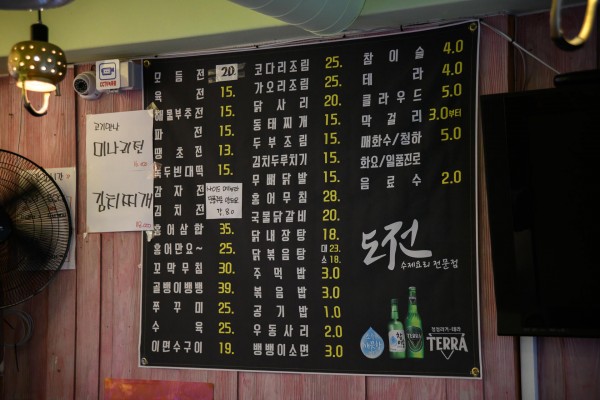 모듬전 20.
육전 15.
해물부추전 15.
파전 15.
땡초전 13.
녹두빈대떡 15.
감자전
김치전
홍어삼합 35.
홍어만요~ 25.
꼬막무침 30.
골뱅이뱅뱅 39.
쭈꾸미 25.
수육 25.
이면수구이 19.
코다리조림 25.
가오리조림 25.
닭사리 20.
동태찌개 15.
두부조림 15.
김치두루치기 15.
무뼈닭발 15.
홍어무침 28.
국물닭갈비 20.
닭내장탕 18.
닭볶음탕 대 23. 소 18.
주먹밥 3.0
볶음밥 3.0
공기밥 1.0
우동사리 2.0
뱅뱅이소면 3.0
참이슬 4.0
테라 4.0
클라우드 5.0
막걸리 3.0부터
매화수/청하 5.0
화요/일품진로
음료수 2.0
도전
수제요리 전문점
청정라거-테라
TERRA
고기대신
미나리전
김치찌개
CCTV